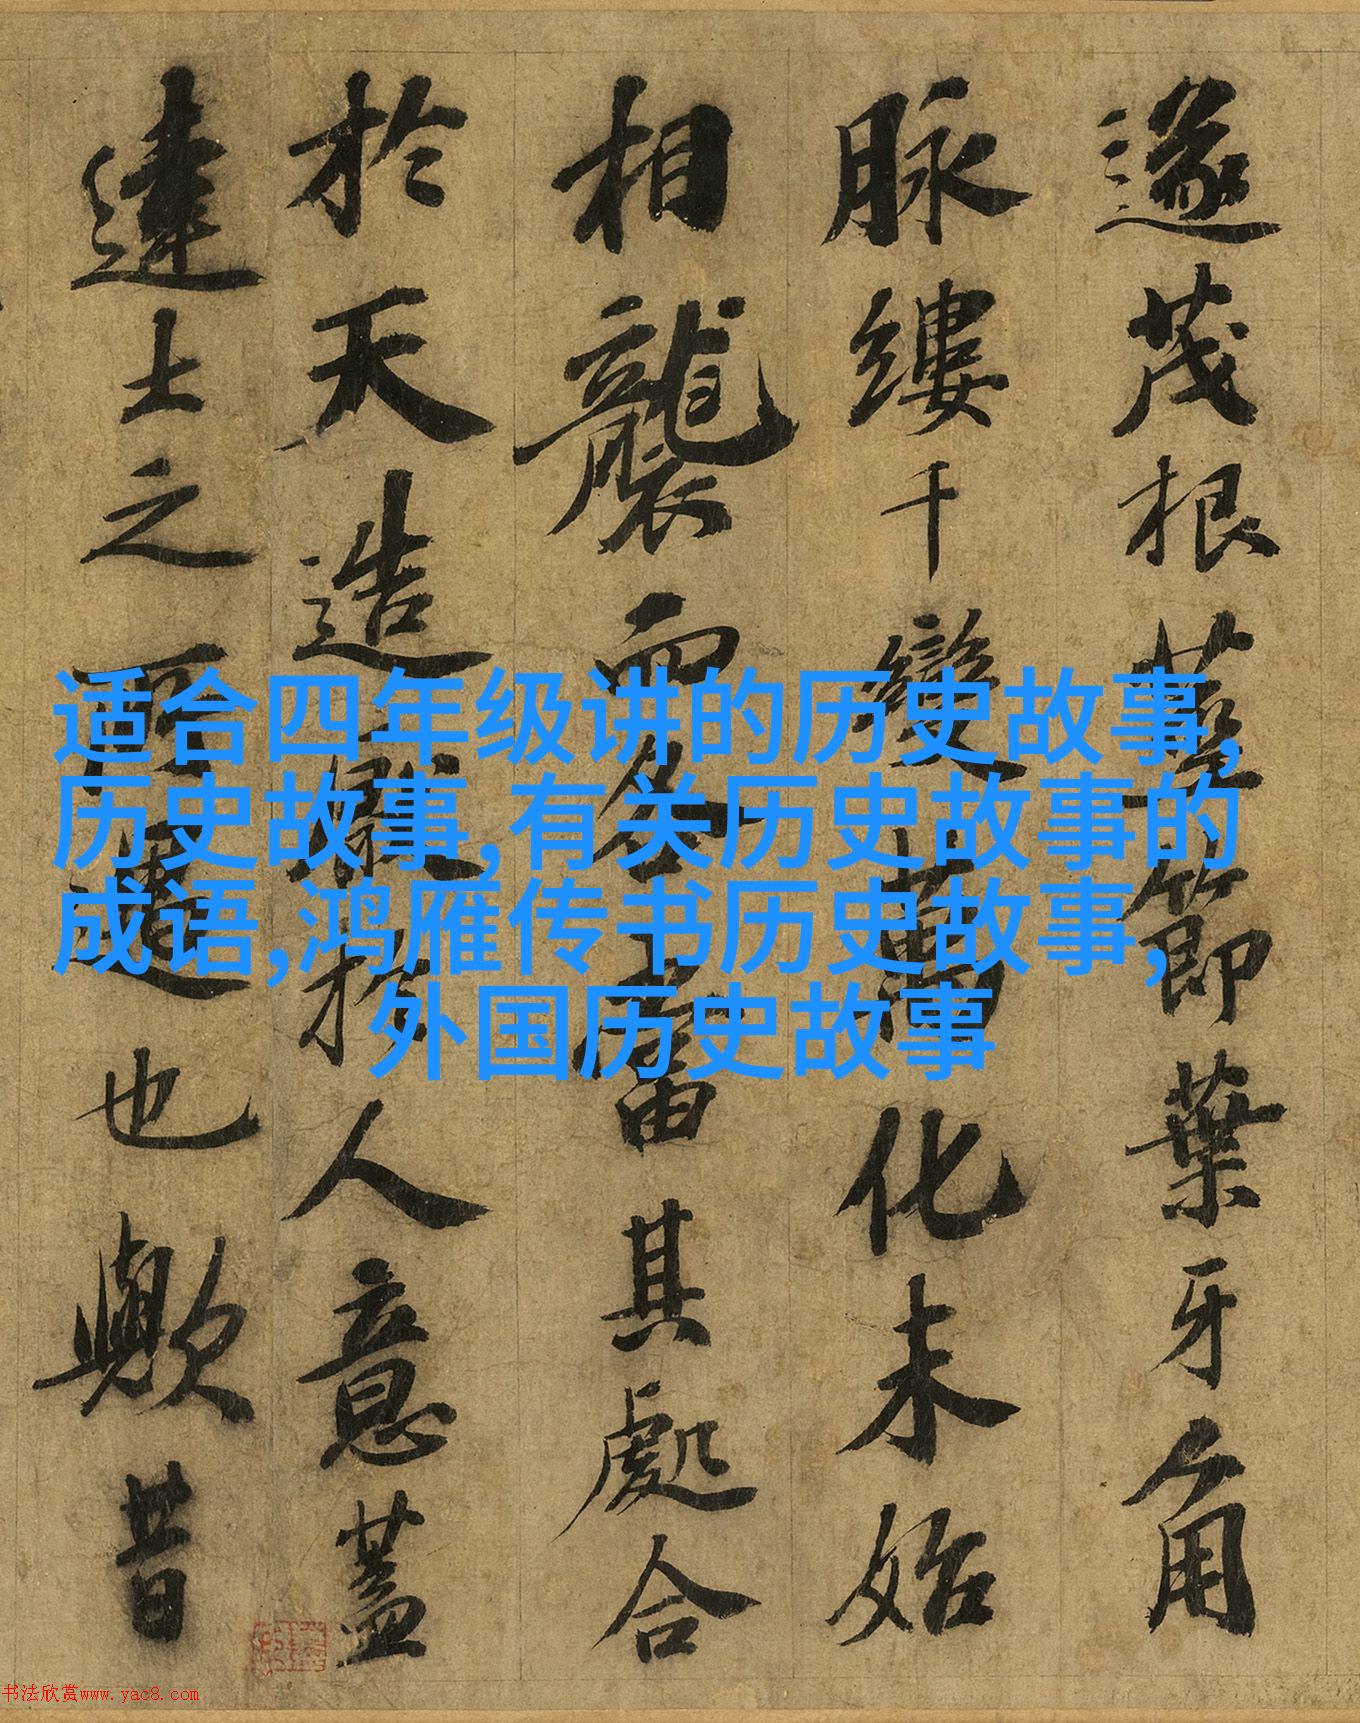 适合四年级讲的历史故事,
历史故事,有关历史故事的
成语,鸿雁传书历史故事,
外国历史故事
遂茂根莖節葉牙角
脉縷千變萬化未始
相襲而各當其處合
於天造於人意蓋
達士之所也歟昔
书法欣赏www.yac8.com